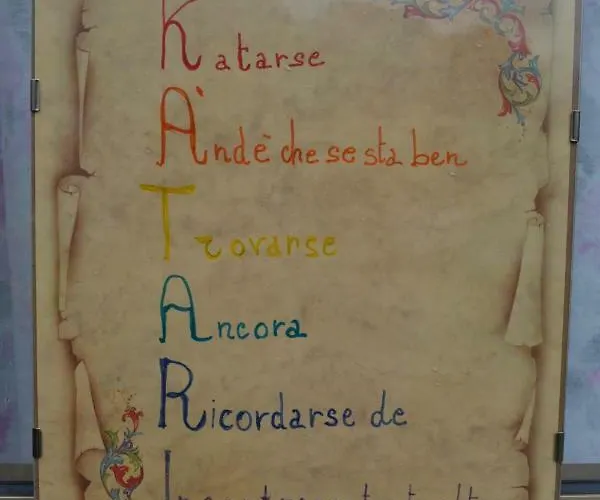 Katarse
Àndè che se sta ben
Trovarse
Ancora
Ricordarse de